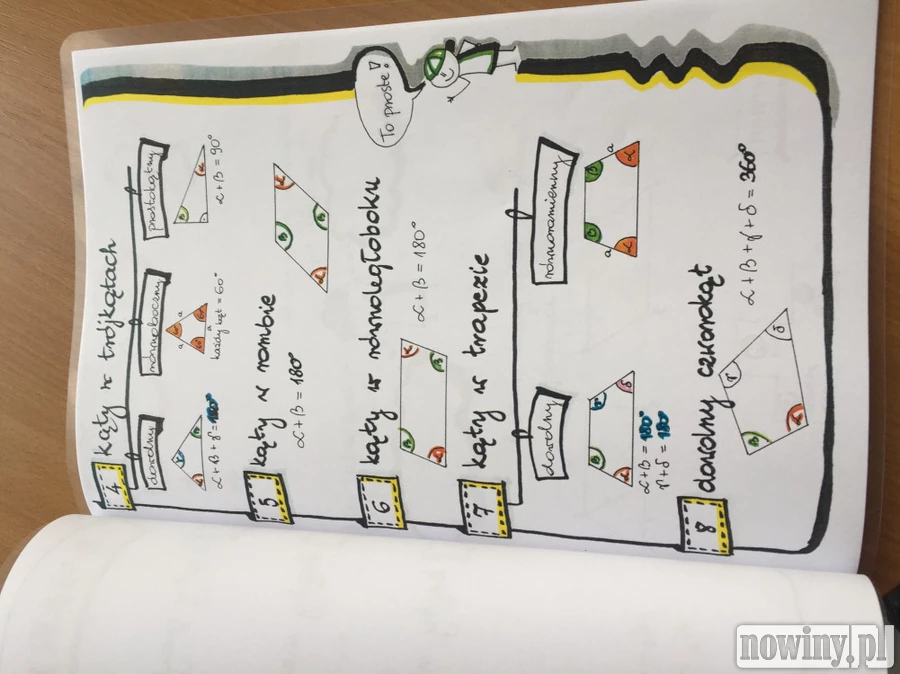 To proste!
4 kąty w trójkątach
dowolny
α
γ
β
α + β + γ = 180°
równoboczny
60°
60°
60°
a
a
a
każdy kąt = 60°
prostokątny
β
α
α + β = 90°
5 kąty w rombie
α + β = 180°
β
α
α
β
6 kąty w równoległoboku
β
α
α
β
α + β = 180°
7 kąty w trapezie
dowolny
β
γ
α
δ
α + β = 180°
γ + δ = 180°
równoramienny
a
β
β
a
α
α
8 dowolny czworokąt
β
γ
α
δ
α + β + γ + δ = 360°
nowiny.pl